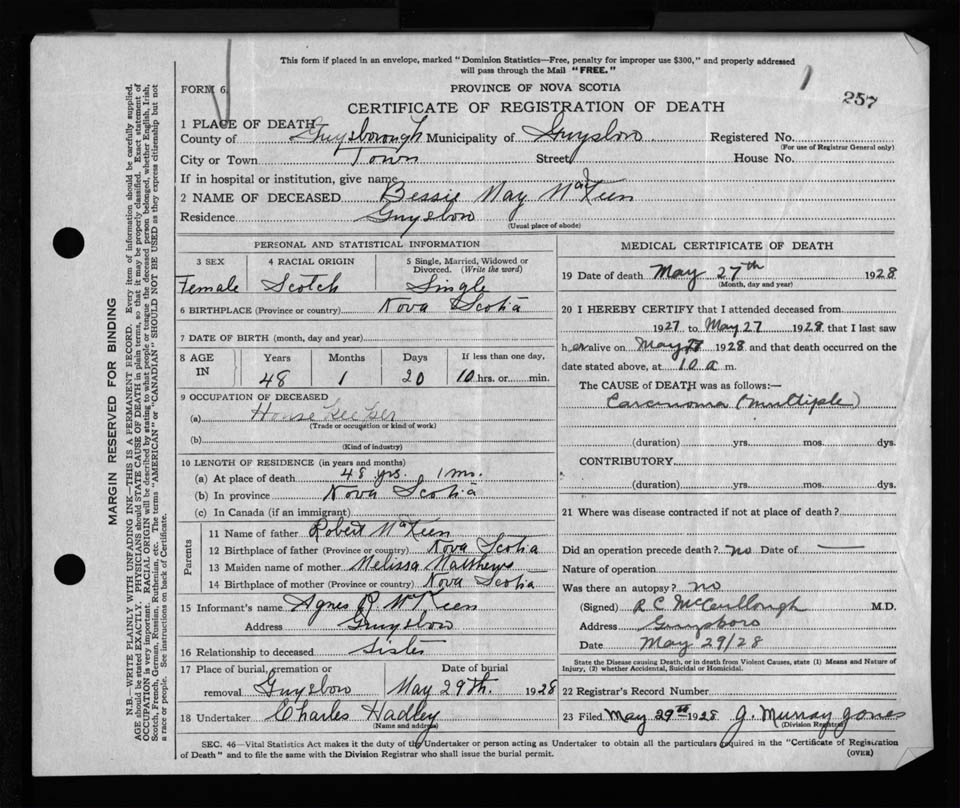 This form if placed in an envelope, marked "Dominion Statistics—Free, penalty for improper use $300," and properly addressed
will pass through the Mail "FREE."
FORM 6.
PROVINCE OF NOVA SCOTIA
257
CERTIFICATE OF REGISTRATION OF DEATH
1 PLACE OF DEATH
County of Guysborough Municipality of Guysboro Registered No.
(For use of Registrar General only)
City or Town Town Street House No.
If in hospital or institution, give name
2 NAME OF DECEASED Bessie May McKeen
Residence Guysboro
(Usual place of abode)
PERSONAL AND STATISTICAL INFORMATION
3 SEX 4 RACIAL ORIGIN 5 Single, Married, Widowed or
Divorced. (Write the word)
Female Scotch Single
6 BIRTHPLACE (Province or country) Nova Scotia
7 DATE OF BIRTH (month, day and year)
8 AGE IN Years Months Days If less than one day,
48 1 20 10 hrs. or min.
9 OCCUPATION OF DECEASED
(a) House Keeper
(Trade or occupation or kind of work)
(b)
(Kind of industry)
10 LENGTH OF RESIDENCE (in years and months)
(a) At place of death 48 yrs. 1 mo.
(b) In province Nova Scotia
(c) In Canada (if an immigrant)
Parents
11 Name of father Robert McKeen
12 Birthplace of father (Province or country) Nova Scotia
13 Maiden name of mother Melissa Matthews
14 Birthplace of mother (Province or country) Nova Scotia
15 Informant's name Agnes R. McKeen
Address Guysboro
16 Relationship to deceased Sister
17 Place of burial, cremation or Date of burial
removal Guysboro May 29th. 1928
18 Undertaker Charles Hadley
(Name and address)
MEDICAL CERTIFICATE OF DEATH
19 Date of death May 27th 1928
(Month, day and year)
20 I HEREBY CERTIFY that I attended deceased from
1927 to May 27 1928 that I last saw
her alive on May 1928 and that death occurred on the
date stated above, at 10 a m.
The CAUSE OF DEATH was as follows:—
Carcinoma (multiple)
(duration) yrs. mos. dys.
CONTRIBUTORY
(duration) yrs. mos. dys.
21 Where was disease contracted if not at place of death?
Did an operation precede death? no Date of —
Nature of operation
Was there an autopsy? no
(Signed) R C McCullough M.D.
Address Guysboro
Date May 29/28
State the Disease causing Death, or in death from Violent Causes, state (1) Means and Nature of
Injury, (2) whether Accidental, Suicidal or Homicidal.
22 Registrar's Record Number
23 Filed May 29th 1928 J. Murray Jones
(Division Registrar)
SEC. 46—Vital Statistics Act makes it the duty of the Undertaker or person acting as Undertaker to obtain all the particulars required in the "Certificate of Registration
of Death" and to file the same with the Division Registrar who shall issue the burial permit.
(OVER)
MARGIN RESERVED FOR BINDING
N.B.—WRITE PLAINLY WITH UNFADING INK—THIS IS A PERMANENT RECORD. Every item of information should be carefully supplied.
AGE should be stated EXACTLY. PHYSICIANS should STATE CAUSE OF DEATH in plain terms, so that it may be properly classified. Exact statement of
OCCUPATION is very important. RACIAL ORIGIN will be described by stating to what people or tongue the deceased person belonged, whether English, Irish,
Scotch, French, German, Russian, Ruthenian, etc. The terms "AMERICAN" or "CANADIAN" SHOULD NOT BE USED as they express citizenship but not
a race or people. See instructions on back of Certificate.